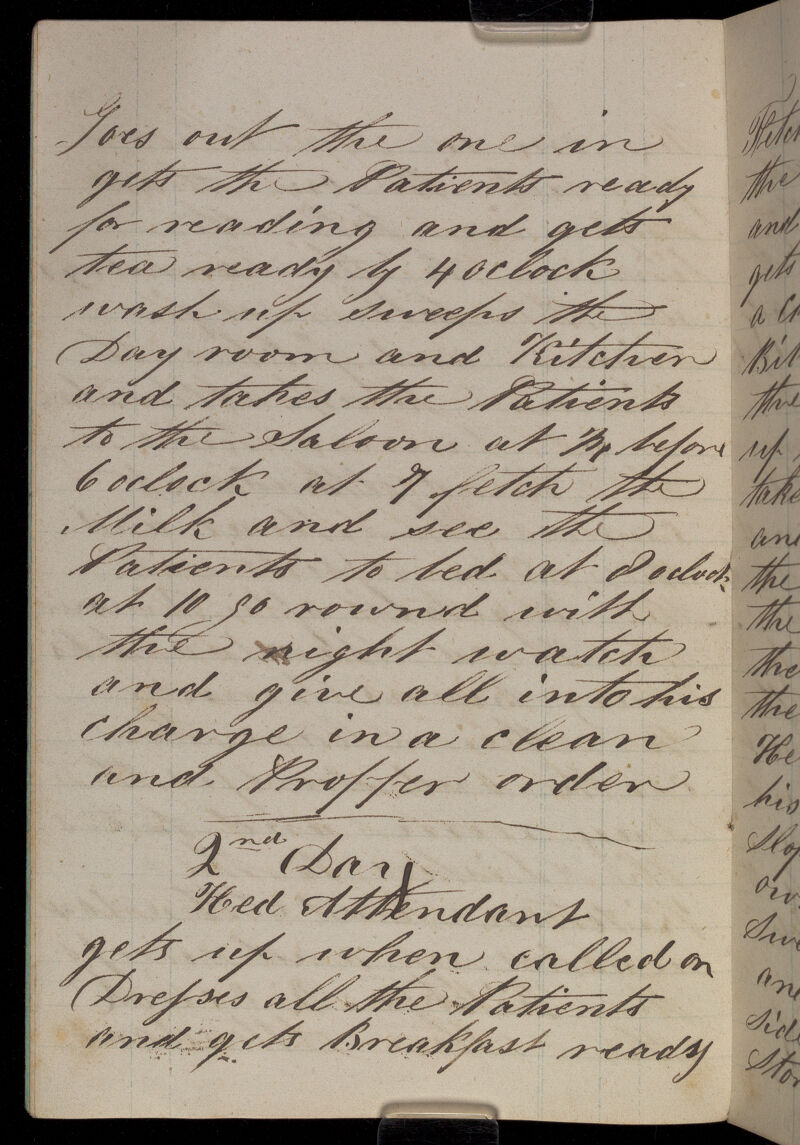 Goes out the one in
gets the Patients ready
for reading and gets
tea ready by 4 oclock
wash up sweeps the
Day room and Kitchen
and takes the Patients
to the Saloon at ¼ before
6 oclock at 7 fetch the
Milk and see the
Patients to bed at 8 oclock
at 10 go rownd with
the night watch
and give all into his
charge in a clean
and Proffer order
2nd Day
Hed Attendant
gets up when called on
Dresses all the Patients
and gets Breakfast ready
Fetch
the
and
gets
a
the
up
take
and
the
the
the
the
He
his
and
Side